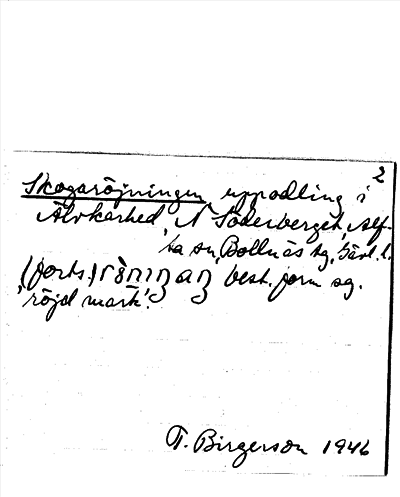 2
Skogaröjningen, uppodling i
Älvkarhed, N Söderberget, Alf-
ta sn, Bollnäs tg, Gävl. l.
(forts.) best. form sg.
'röjd mark'.
T. Birgerson 1946